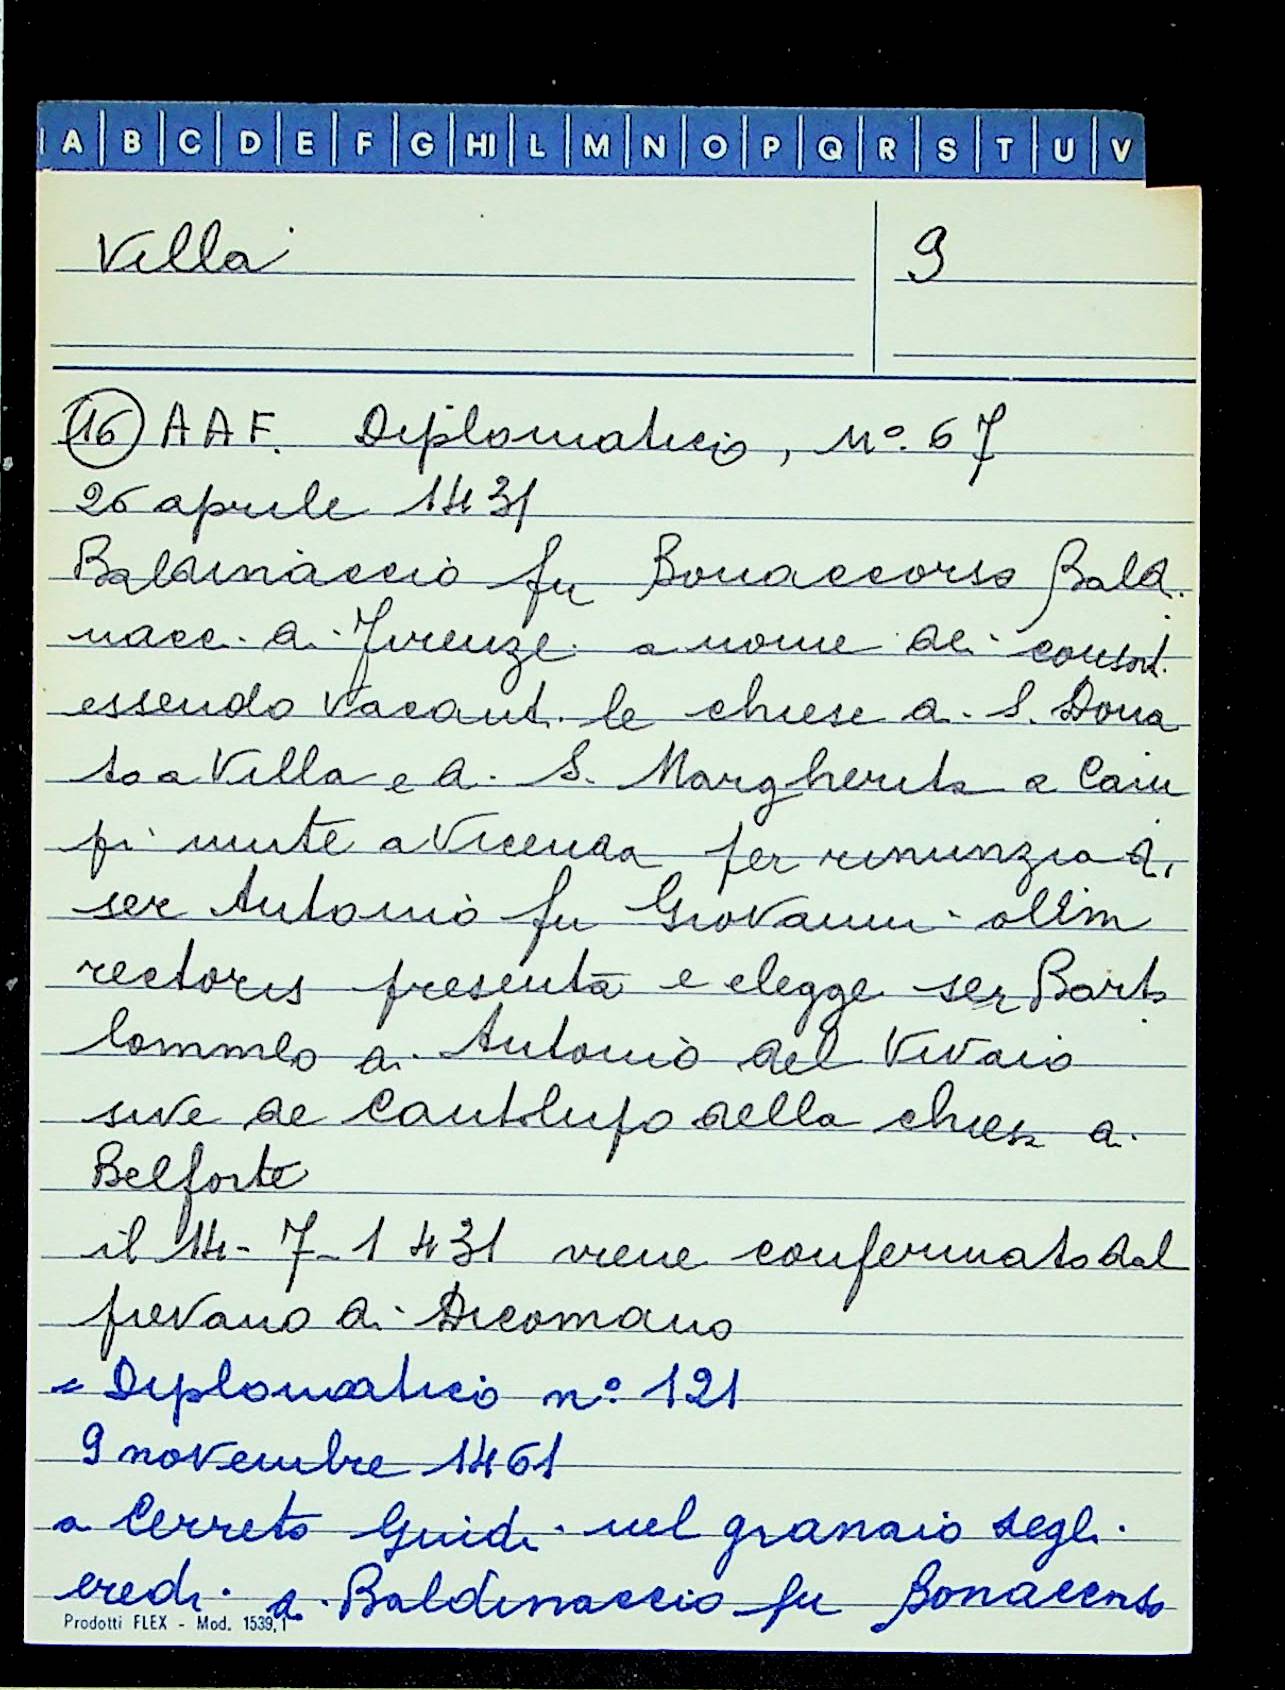 A B C D E F G HI L M N O P Q R S T U V
Villa 9
16 A A F. Diplomatico, nº. 67
26 aprile 1431
Baldinaccio fu Bonaccorso Baldi
nacci di Firenze a nome dei consorti
essendo vacanti le chiese di S. Dona
to a Villa e di S. Margherita a Cam
pi unite a vicenda per rinunzia di
ser Antonio fu Giovanni olim
rectoris presenta e elegge ser Barto
lommeo di Antonio del Vivaio
sive de Cantolupo della chiesa di
Belforte
il 14-7-1431 viene confermato dal
pievano di Dicomano
= Diplomatico nº. 121
9 novembre 1461
a Cerreto Guidi nel granaio degli
eredi di Baldinaccio fu Bonaccorso
Prodotti FLEX - Mod. 1539,1